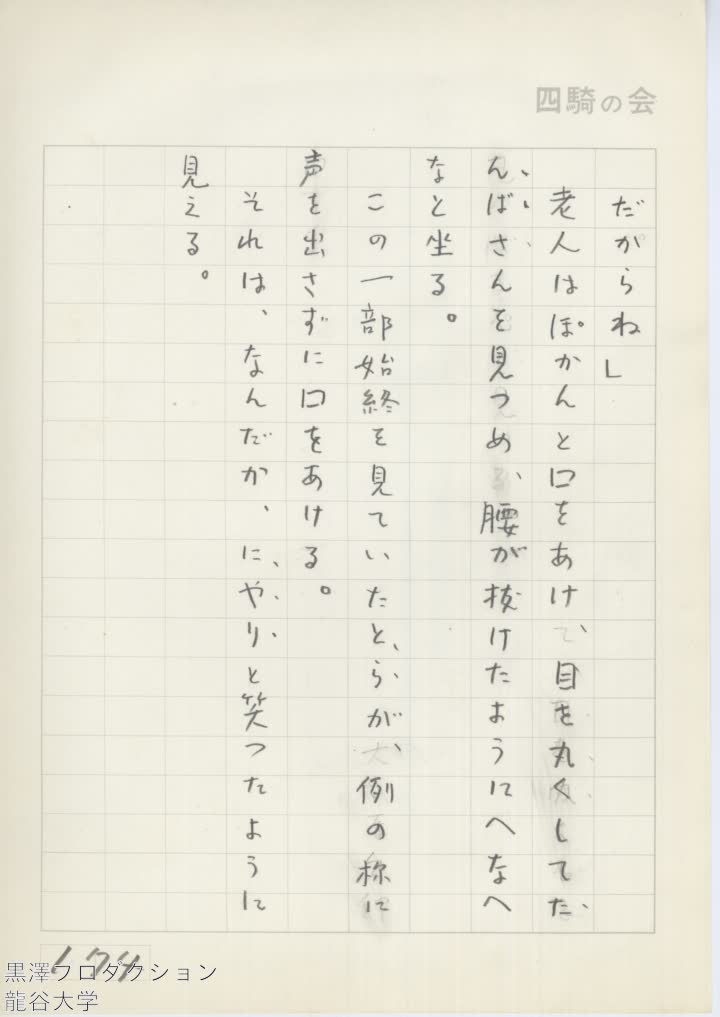 四騎の会
だからね」
老人はぽかんと口をあけ、目を丸くしてた
んばさんを見つめ、腰が抜けたようにへなへ
なと坐る。
この一部始終を見ていたとらが、例の称に
声を出さずに口をあける。
それは、なんだか、にやりと笑つたように
見える。
174
黒澤プロダクション
龍谷大学